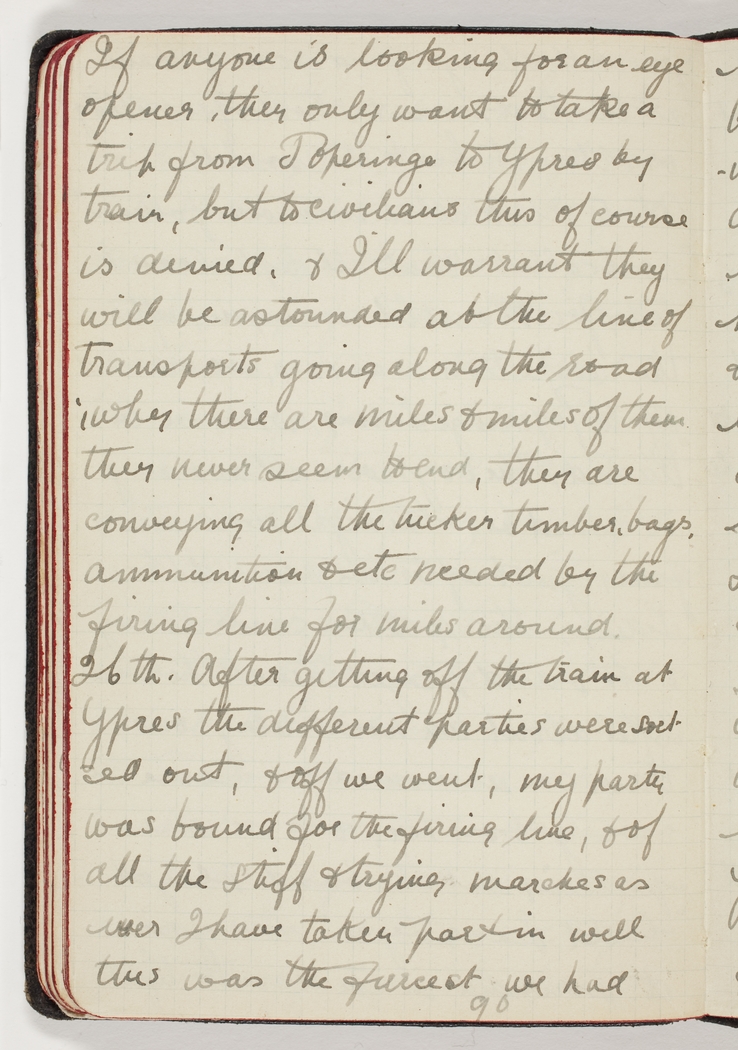 If anyone is looking for an eye
opener, they only want to take a
trip from Poperinge to Ypres by
train, but to civilians this of course
is denied. & I'll warrant they
will be astounded at the line of
transports going along the road
, why there are miles & miles of them
they never seem to end, they are
conveying all the tucker timber, bags,
ammunition & etc needed by the
firing line for miles around.
26th. After getting off the train at
Ypres the different parties were sort-
ed out, & off we went, my party
was bound for the firing line, & of
all the stiff & trying marches as
ever I have taken part in well
this was the fiercest we had
90